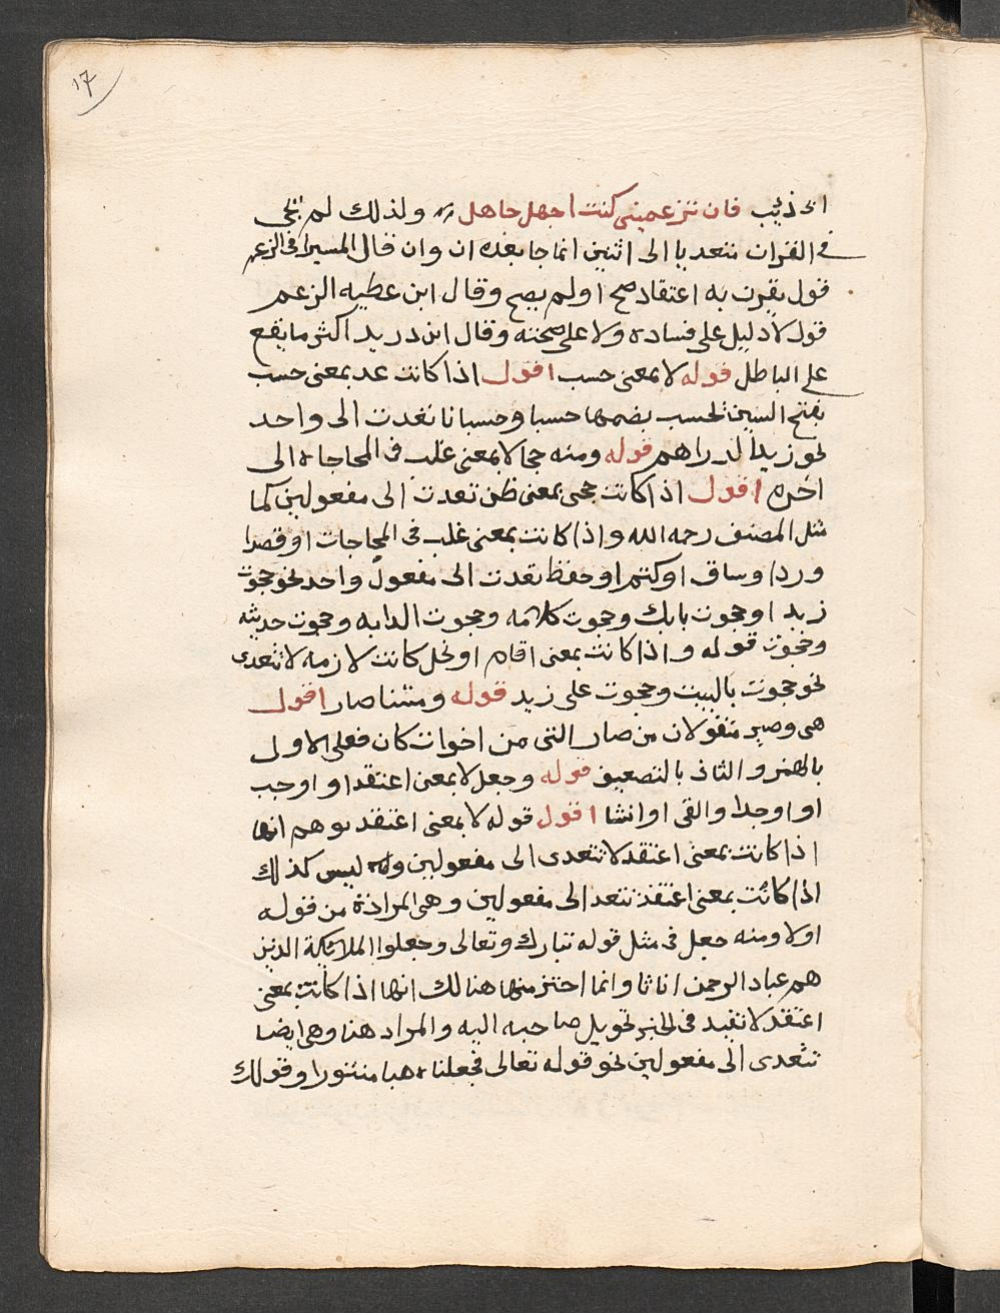 ١٧
ابى ذئيب فان تزعمينى كنت اجهل جاهل ولذلك لم يجى
فى القران متعديا الى اثنين انما جا بعده ان وان قال السيرافى الزعم
قول يقرن به اعتقاد صح او لم يصح وقال ابن عطيه الزعم
قول لا دليل على فساده ولا على صحته وقال ابن دريد اكثر ما يقع
على الباطل قوله لا بمعنى حسب اقول اذا كانت عد بمعنى حسب
بفتح السين تحسب بضمها حسبا وحسبانا تعدت الى واحد
نحو زيدا لدراهم قوله ومنه حجا لا بمعنى غلب فى المحاجاه الى
اخره اقول اذا كانت حجى بمعنى ظن تعدت الى مفعولين كما
مثل المصنف رحمه الله واذا كانت بمعنى غلب فى المحاجات او قصد ا
ورد او ساق او كتم او حفظ تعدت الى مفعول واحد نحو حجوت
زيد او حجوت بابك وحجوت كلامه وحجوت الدابه وحجوت حديثه
وحجوت قوله واذا كانت بمعنى اقام او نحل كانت لازمه لا تتعدى
نحو حجوت بالبيت وحجوت على زيد قوله ومتنا صار اقول
هى وصير منقولان من صار التى من اخوات كان فعلى الاول
بالهمز والثانى بالتضعيف قوله وجعل لا بمعنى اعتقد او اوجب
او اوجد او القى او انشا اقول قوله لا بمعنى اعتقد يوهم انها
اذا كانت بمعنى اعتقد لا تتعدى الى مفعولين وله ليس كذلك
اذا كانت بمعنى اعتقد تتعد الى مفعولين وهى المرادة من قوله
اولا ومنه جعل فى مثل قوله تبارك وتعالى وجعلوا الملائكة الذين
هم عباد الرحمن اناثا وانما احترز منها هنالك انها اذا كانت بمعنى
اعتقد لا تفيد فى الخبر تحويل صاحبه اليه والمراد هنا وهى ايضا
تتعدى الى مفعولين نحو قوله تعالى فجعلناه هبا منثورا وقولك